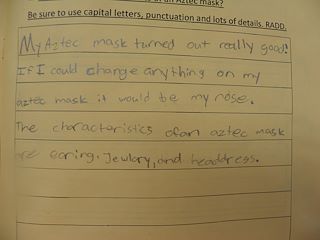 of an Aztec mask?
Be sure to use capital letters, punctuation and lots of details. RADD.
My Aztec mask turned out really good!
If I could change anything on my
aztec mask it would be my nose.
The characteristics ofan aztec mask
are earing. Jewlary, and headdress.